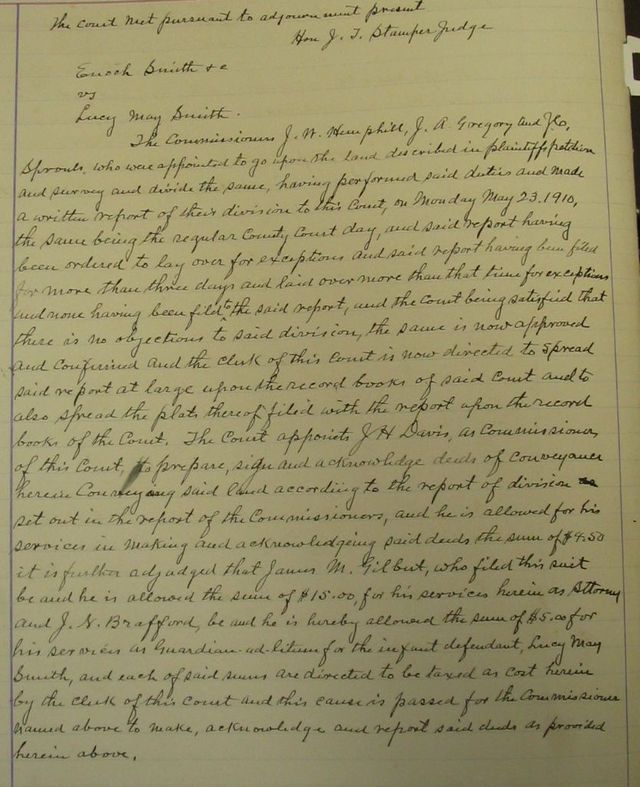 The Court Met pursuant to adjournment present
Hon J. T. Stamper Judge
Enoch Smith &c
vs
Lucy May Smith.
The Commissioners J. W. Hemphill, J. A. Gregory and J. Co,
Sprouls, who were appointed to go upon the land described in plaintiffs petition
and survey and divide the same, having performed said duties and made
a written report of their division to this Court, on Monday May 23. 1910,
the same being the regular County Court day, and said report having
been ordered to lay over for exceptions and said report having been filed
for more than three days and laid over more than that time for exceptions
and none having been filed to the said report, and the Court being satisfied that
there is no objections to said division, the same is now approved
and confirmed and the clerk of this Court is now directed to spread
said report at large upon the record books of said Court and to
also spread the plats thereof filed with the report upon the record
books of the Court. The Court appoints J H Davis, as Commissioner
of this Court, to prepare, sign and acknowledge deeds of conveyance
herein Conveying said land according to the report of division as
set out in the report of the Commissioners, and he is allowed for his
services in making and acknowledging said deeds the sum of $4.50
it is further adjudged that James M. Gilbert, who filed this suit
be and he is allowed the sum of $15.00, for his services herein as Attorney
and J. N. Brafford, be and he is hereby allowed the sum of $5.00 for
his services as Guardian-ad-litum for the infant defendant, Lucy May
Smith, and each of said sums are directed to be taxed as cost herein
by the clerk of this court and this cause is passed for the Commissioner
named above to make, acknowledge and report said deeds as provided
herein above.